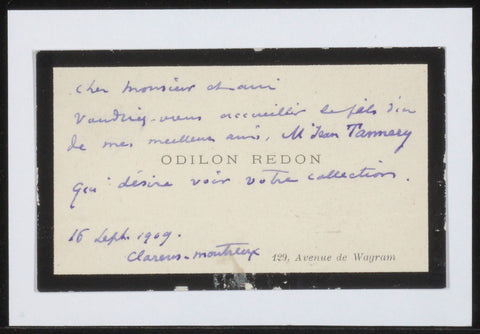 cher monsieur et ami
Voudriez-vous accueillir le fils d'un
de mes meilleurs amis, Mr Jean Tannery
ODILON REDON
qui désire voir votre collection.
16 Sept. 1909.
Clarens-Montreux
129, Avenue de Wagram